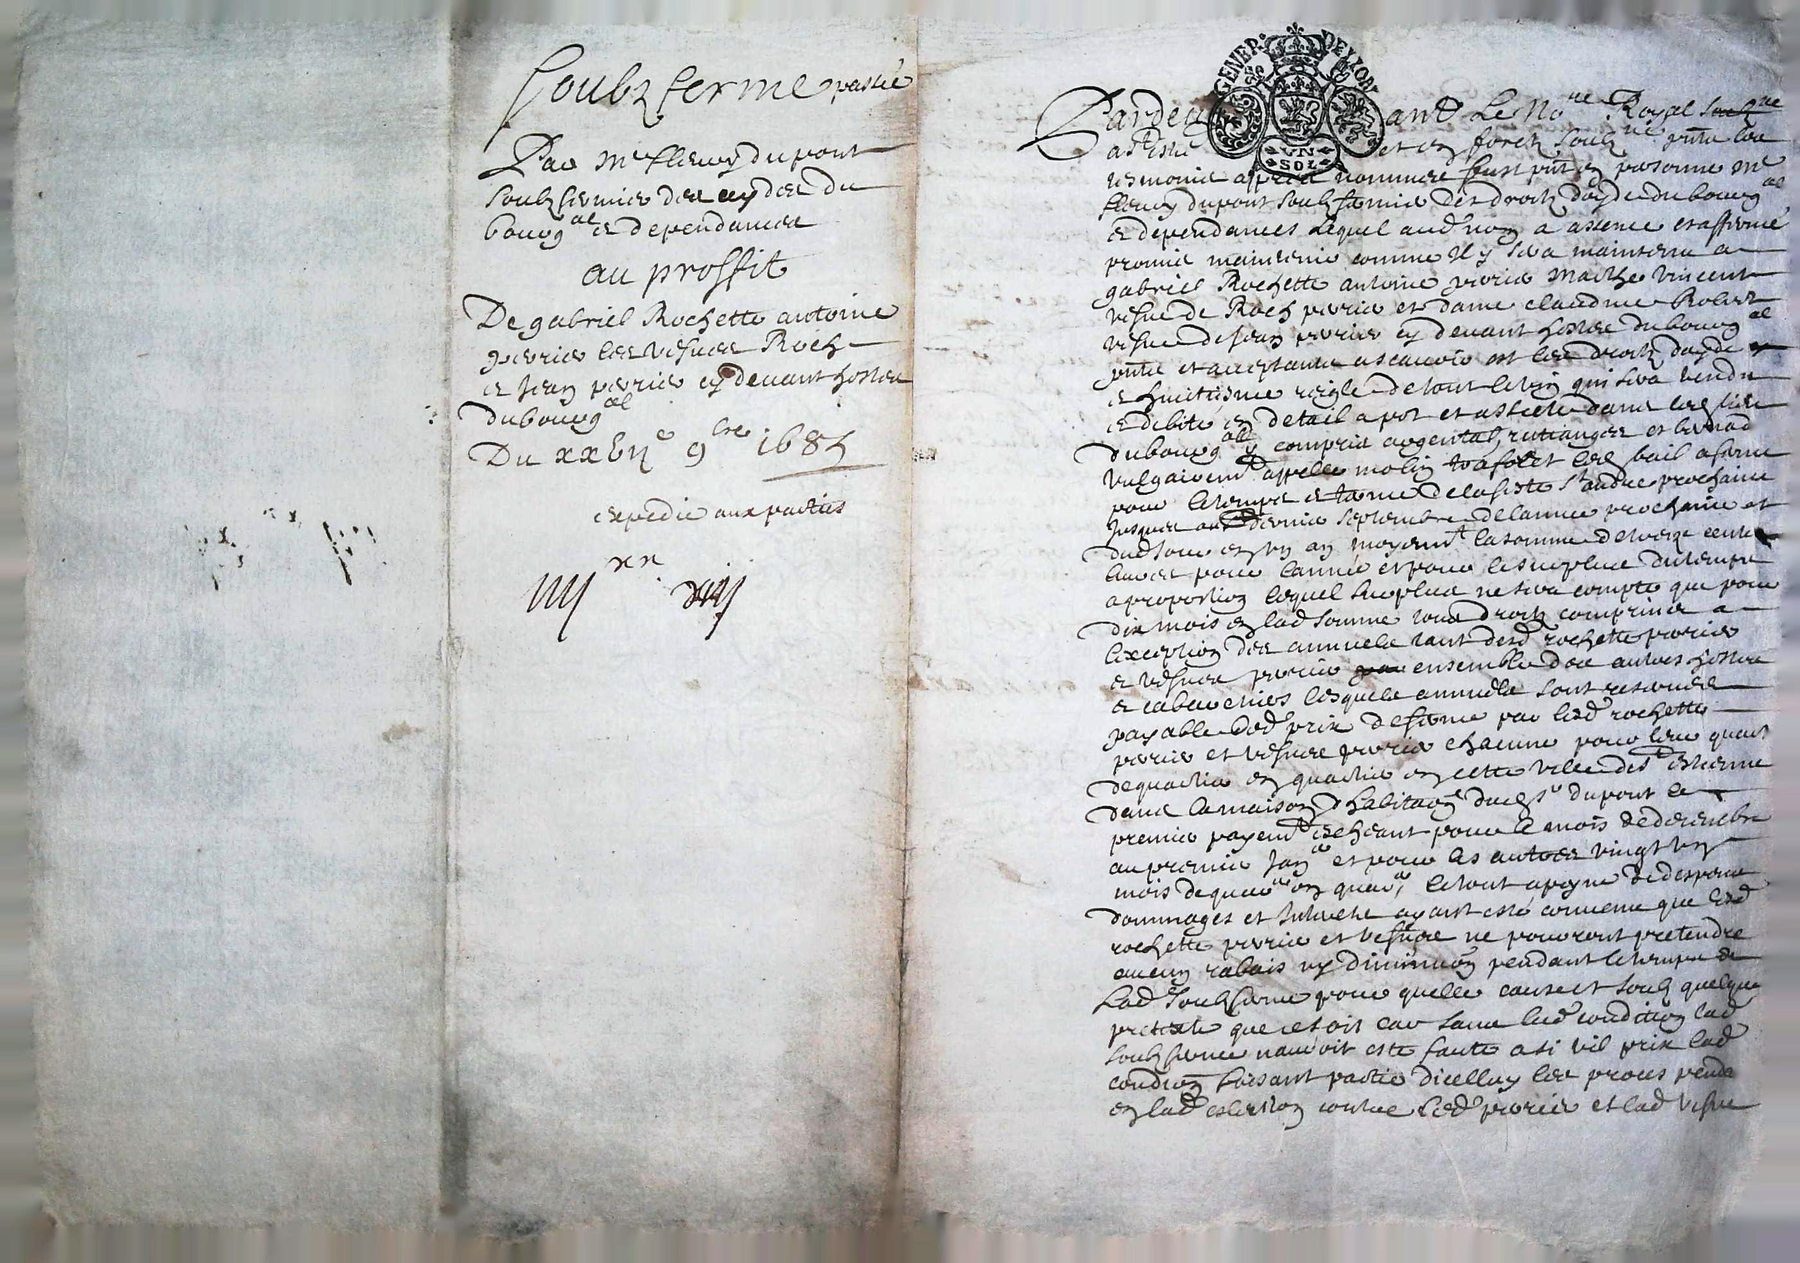 Soubz ferme passée
Par Me Fleury dupont
soubz fermier des aydes du
bourgal et dependances
au proffit
De gabriel Rochette antoine
perrier les vesves Roch
et Jean perrier cy devant hostes
du bourgal
Du xxbne 9bre 1685
expedié aux parties
GENER DE LYON
UN
SOL
Pardevant Le Nore Royal
et en forez soubzne pnts les
tesmoins apres nommes fust pnt en personne Me
fleury dupont soubz fermier des droitz dayde du bourgal
et dependances lequel aud nom a assencé et affermé
promis maintenir comme il y sera maintenu a
gabriel Rochette antoine perrier Marthe Vincent
vesve de Roch perrier et dame claudine Robert
vesve de Jean perrier cy devant hostes du bourgal
pnts et acceptants ascavoir est les droitz dayde
et huitiesme reigle de tout le vin qui sera vendu
et debité en detail a pot et assiete dans les lieu
du bourgal y compris argental rutianges et burdad
vulgairemt appelle molin les bail a ferme
pour le temps et terme de la feste St andre prochaine
jusques au dernier septembre de lannee prochaine et
dud jour en un an moyent la somme de treize cents
livres pour lannee et pour le surplus du temps
a proportion lequel surplus ne sera compte que pour
dix mois en lad somme tous droitz comprins a
lexception des annuels tant desd rochette perrier
et vesves perrier ensemble des autres hostes
et cabaretiers lesquels annuels sont reservés
payable led prix de ferme par lesd rochette
perrier et vesves perrier chacune pour leur quart
de quartier en quartier en cette ville de St estienne
dans la maison dhabitaon dud Sr dupont le
premier payemt escheant pour le mois de decembre
au premier Janer et pour les autres vingt un
mois de quarer en quarer le tout a peyne de despens
dommages et interestz ayant esté convenu que lesd
rochette perrier et vesves ne pourront pretendre
aucun rabais ny diminuon pendant le temps de
Lad soubz ferme pour quelle cause et soubz quelque
pretexte que ce soit car sans lad condition lad
soubz ferme nauroit esté faite a si vil prix lad
condion faisant partie dicelluy les proces pends
en lad eslection contre led perrier et lad vesve